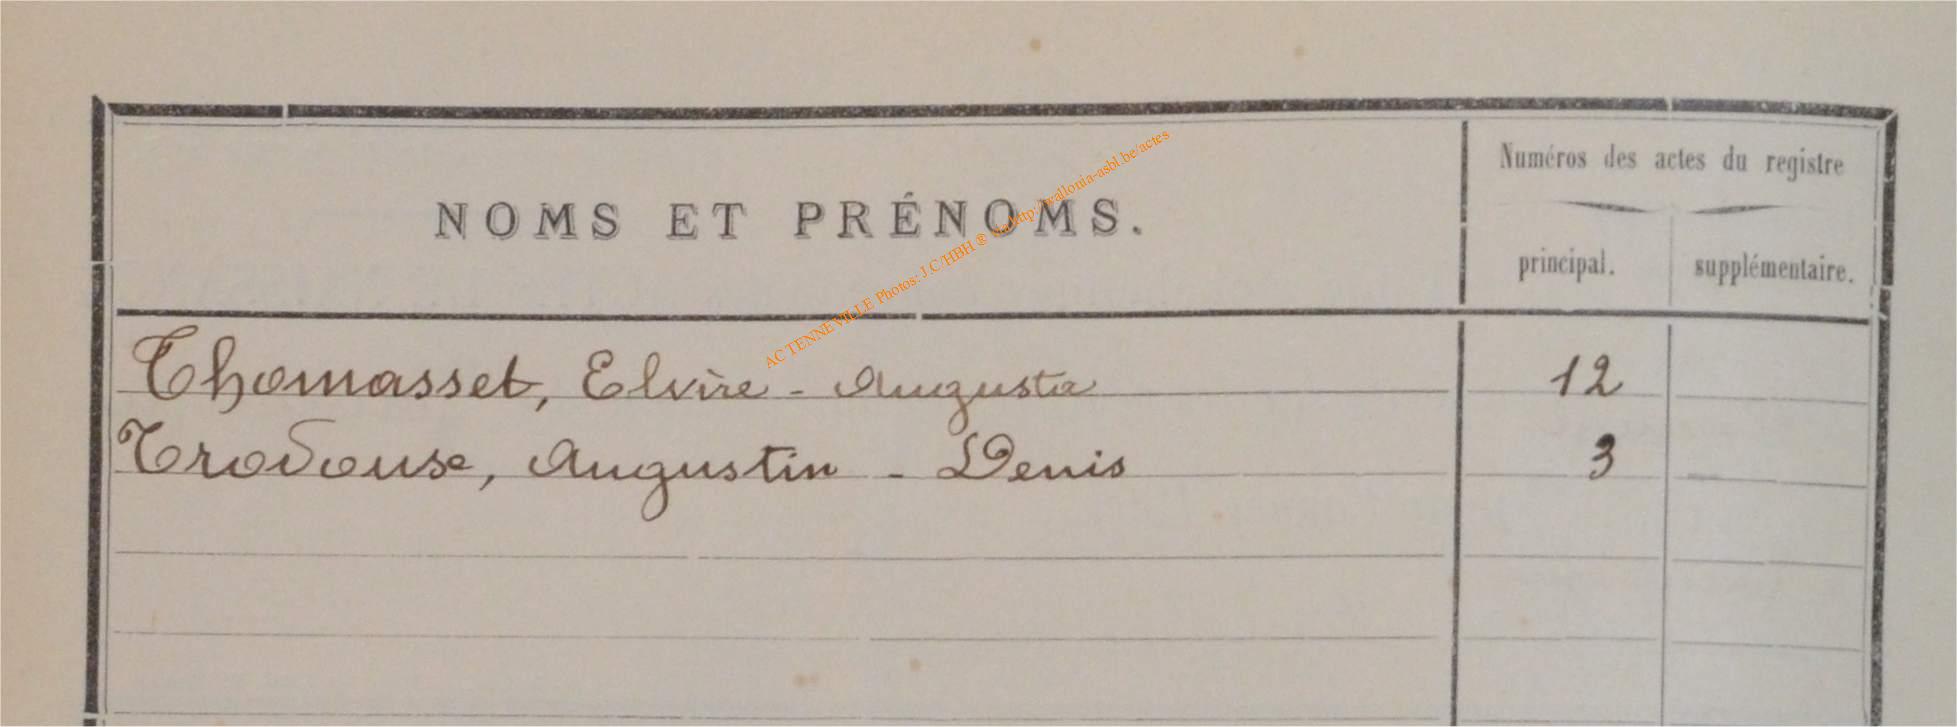 Numéros des actes du registre
NOMS ET PRÉNOMS.
principal. supplémentaire.
AC TENNEVILLE Photos: J.C/HBH ® via http://wallonia-asbl.be/actes
Thomasset, Elvire - Augusta 12
Trodouse, Augustin - Denis 3